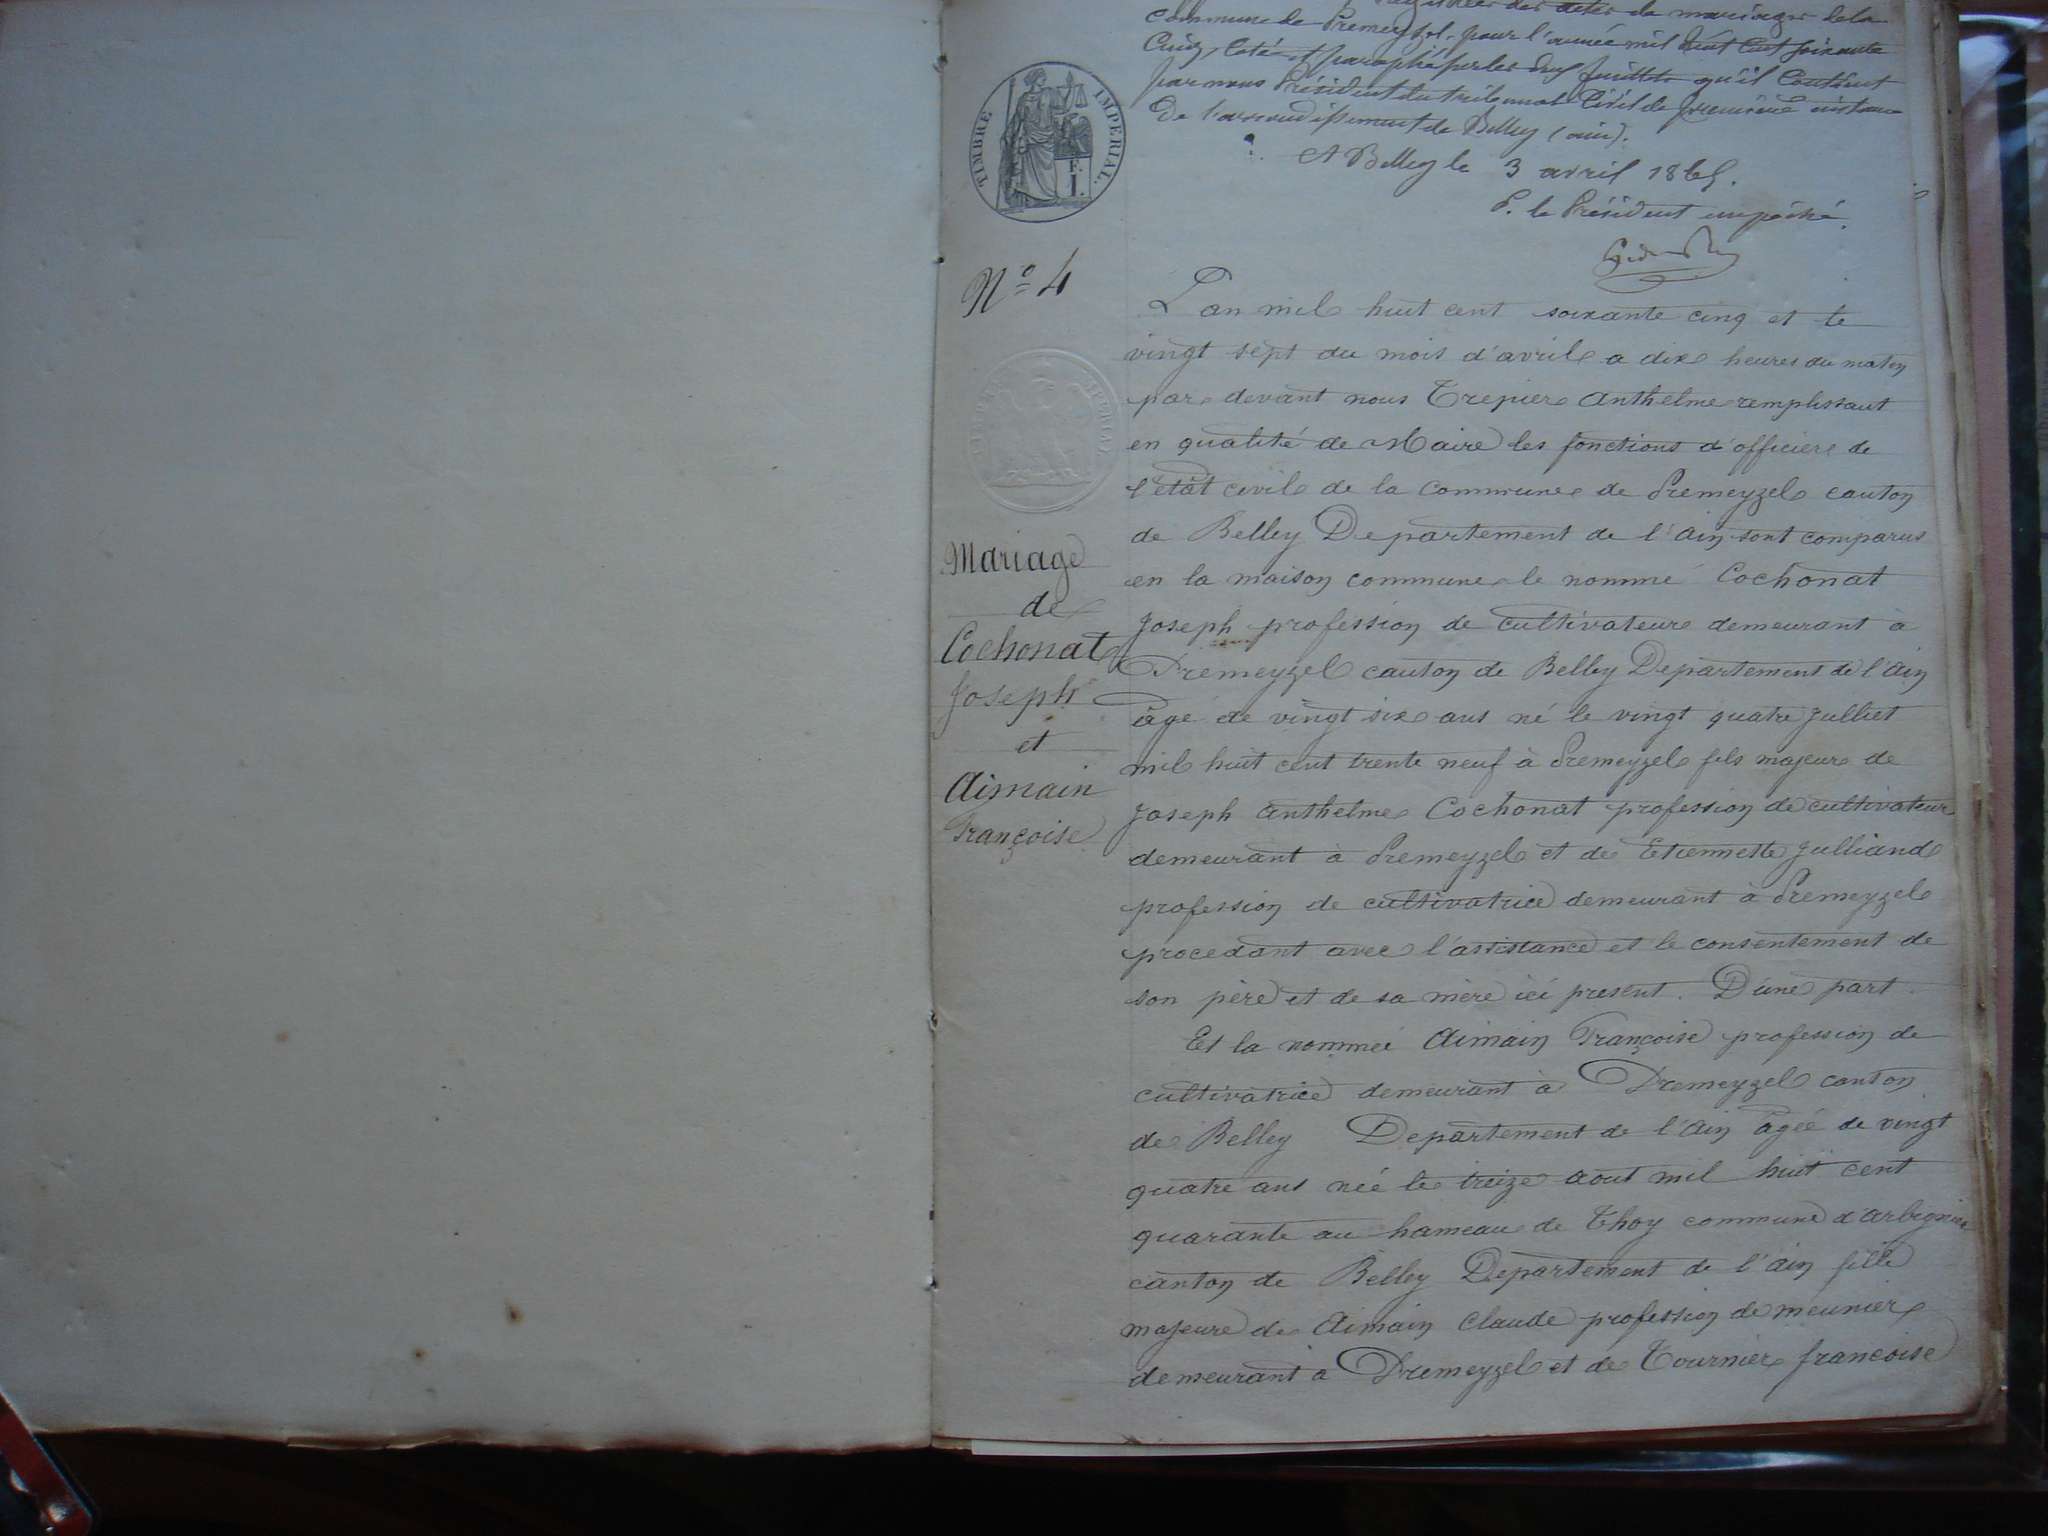 registre des actes de mariages de la
commune de Premeyzel, pour l'année mil huit cent soixante
cinq, coté et paraphé par les dix feuillets qu'il contient
par nous Président du tribunal Civil de première instance
De l'arrondissement de Belley (ain).
A Belley le 3 avril 1865.
P. le Président empêché.
TIMBRE IMPERIAL.
E. I.
N° 4
L'an mil huit cent soixante cinq et le
vingt sept du mois d'avril a dix heures du matin
par devant nous Trepier Anthelme remplissant
en qualité de Maire les fonctions d'officier de
l'etat civil de la commune de Premeyzel canton
de Belley Departement de l'Ain sont comparus
en la maison commune le nommé Cochonat
Joseph profession de cultivateur demeurant à
Premeyzel canton de Belley Departement de l'Ain
âgé de vingt six ans né le vingt quatre Julliet
mil huit cent trente neuf à Premeyzel fils majeur de
Joseph Anthelme Cochonat profession de cultivateur
demeurant à Premeyzel et de Etiennette Julliand
profession de cultivatrice demeurant à Premeyzel
procedant avec l'assistance et le consentement de
son père et de sa mère ici present. D'une part.
Et la nommée Aimain Françoise profession de
cultivatrice demeurant à Premeyzel canton
de Belley Departement de l'Ain âgée de vingt
quatre ans née le treize aout mil huit cent
quarante au hameau de Thoy commune d'arbignieu
canton de Belley Departement de l'Ain fille
majeure de Aimain Claude profession de meunier
demeurant à Premeyzel et de Tournier françoise
Mariage
de
Cochonat
Joseph
et
Aimain
Françoise